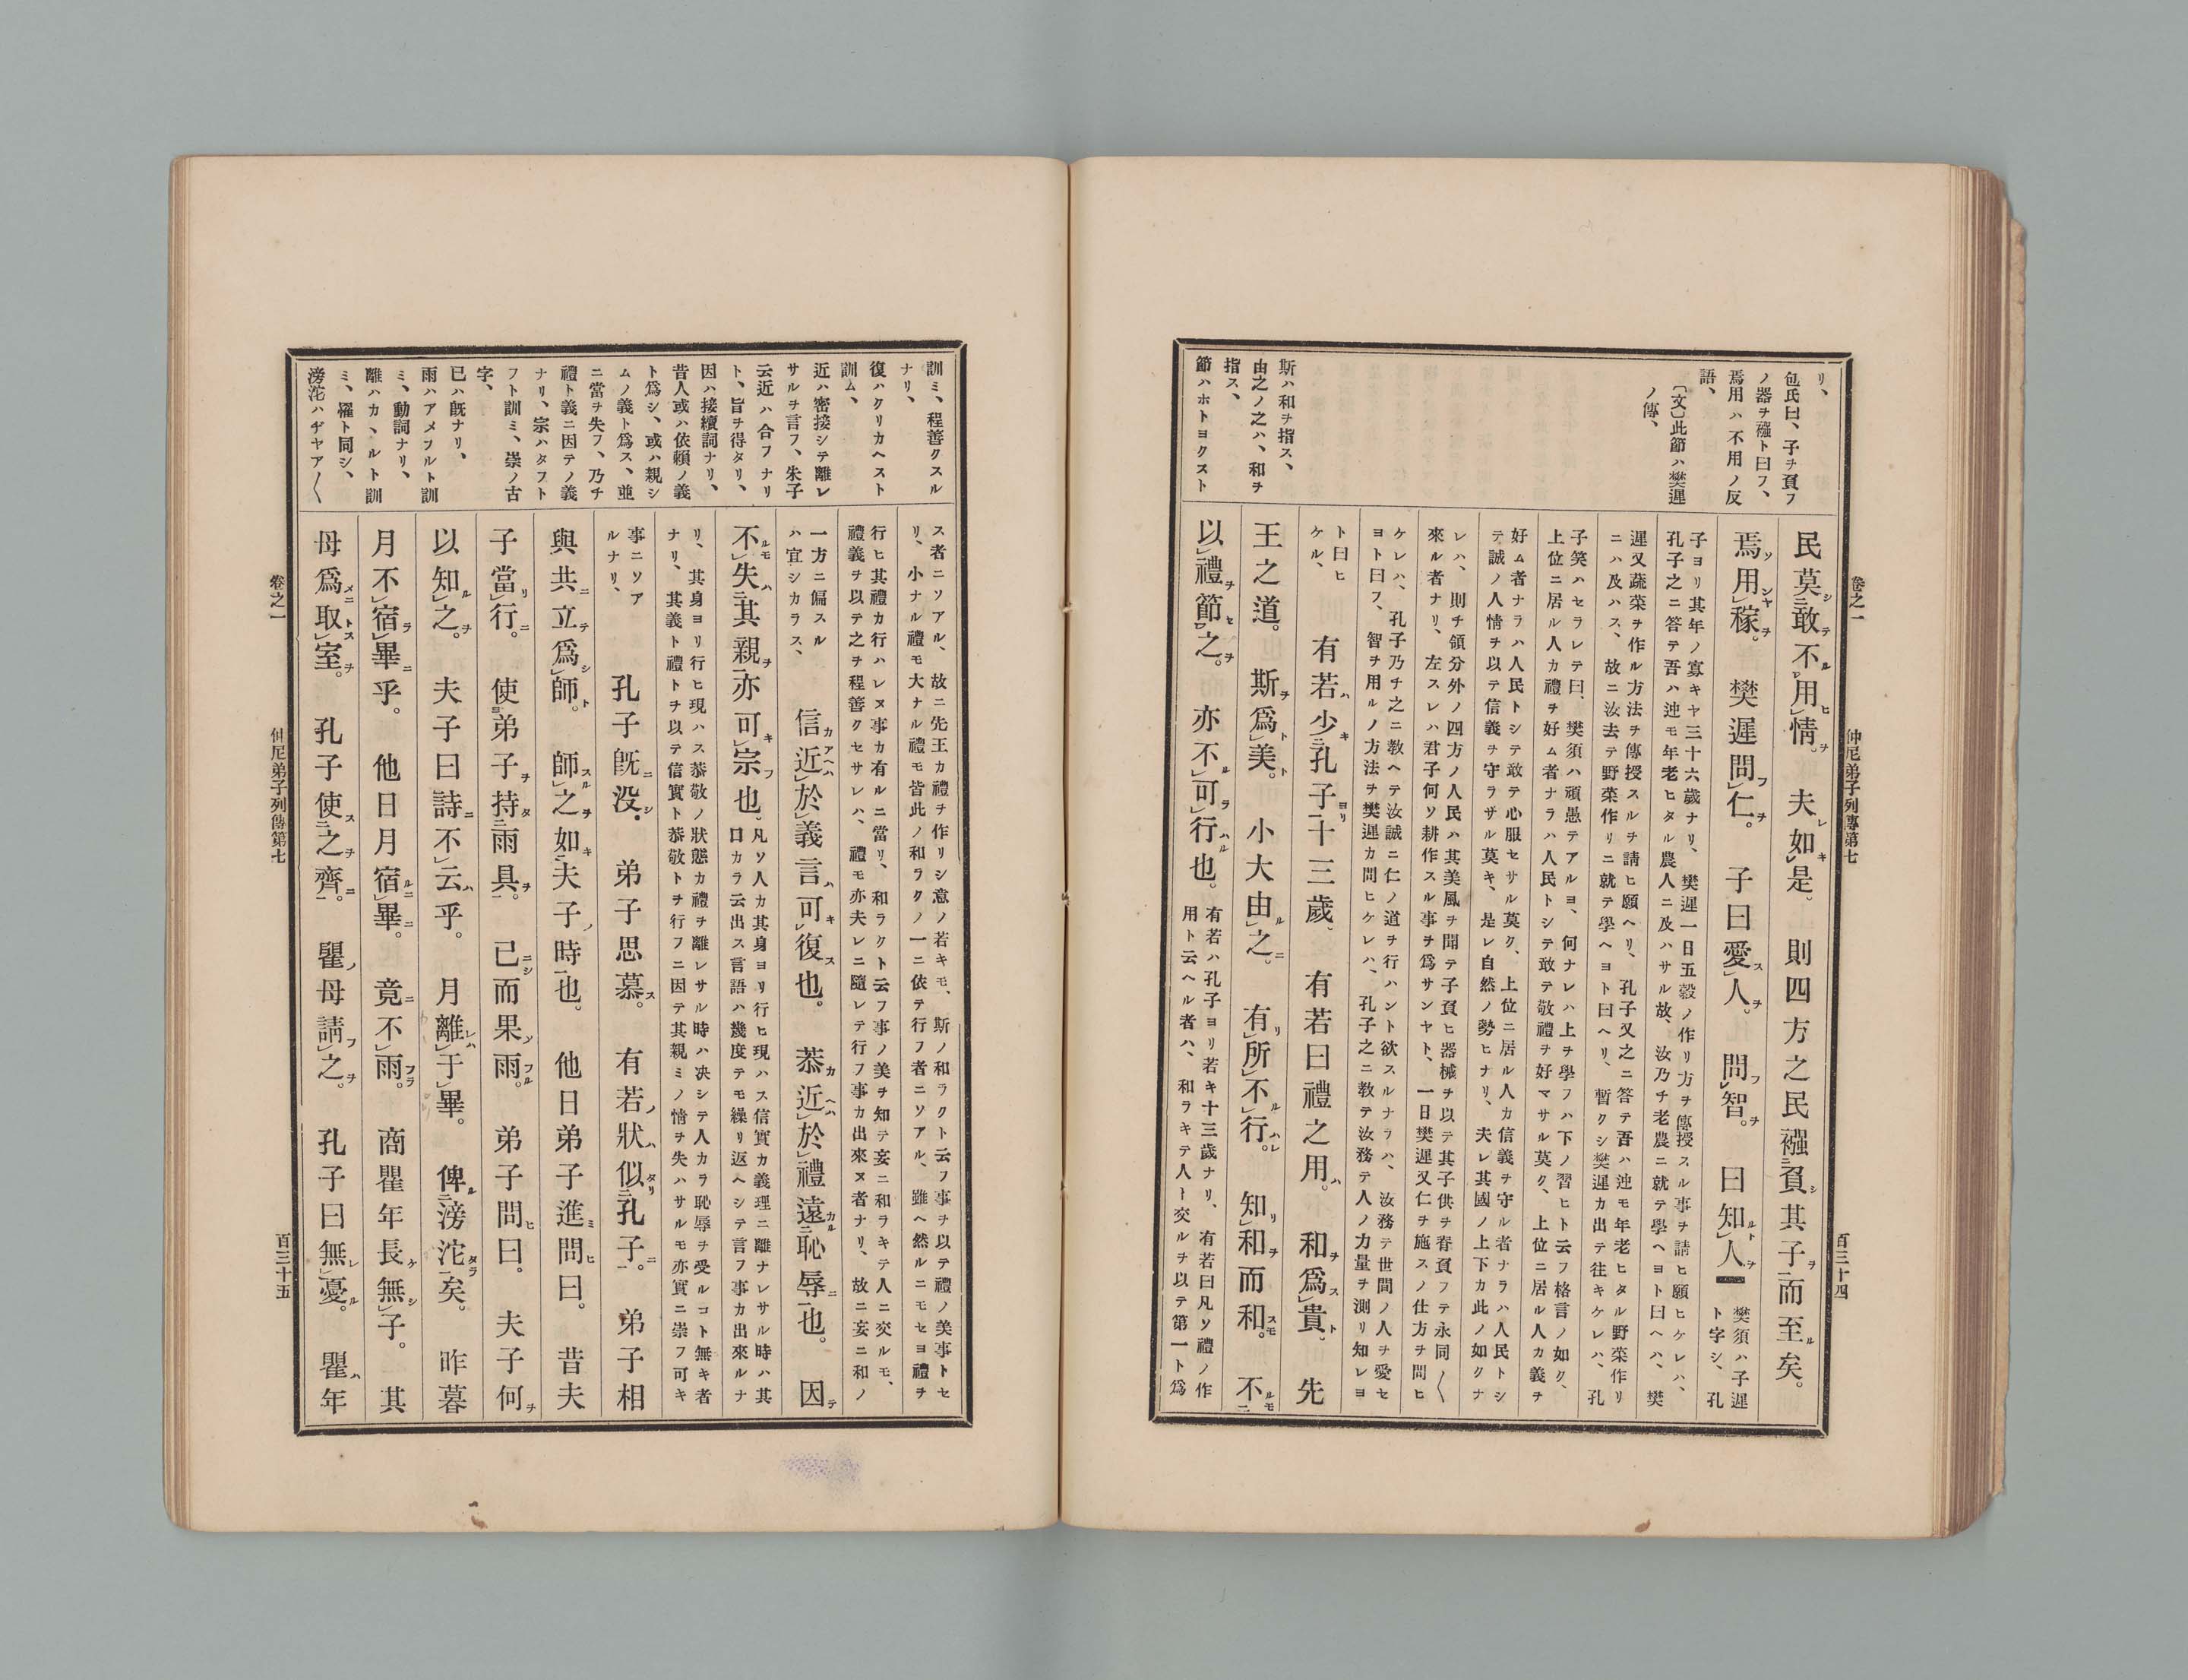 卷之一
仲尼弟子列傳第七
百三十四
リ、
包氏曰、子ヲ負フ
ノ器ヲ襁ト曰フ、
焉用ハ不用ノ反
語、
〔文〕此節ハ樊遲
ノ傳、
斯ハ和ヲ指ス、
由之ノ之ハ、和ヲ
指ス、
節ハホトヨクスト
民莫敢不用情。夫如是。則四方之民襁負其子而至矣。
焉用稼。樊遲問仁。子曰愛人。問智。曰知人
樊須ハ子遲
ト字シ、孔
子ヨリ其年ノ寡キヤ三十六歲ナリ、樊遲一日五穀ノ作リ方ヲ傳授スル事ヲ請ヒ願ヒケレハ、
孔子之ニ答テ吾ハ迚モ年老ヒタル農人ニ及ハサル故、汝乃チ老農ニ就テ學ヘヨト曰ヘハ、樊
遲又蔬菜ヲ作ル方法ヲ傳授スルヲ請ヒ願ヘリ、孔子又之ニ答テ吾ハ迚モ年老ヒタル野菜作リ
ニハ及ハス、故ニ汝去テ野菜作リニ就テ學ヘヨト曰ヘリ、暫クシ樊遲カ出テ往キケレハ、孔
子笑ハセラレテ曰、樊須ハ頑愚テアルヨ、何ナレハ上ヲ學フハ下ノ習ヒト云フ格言ノ如ク、
上位ニ居ル人カ禮ヲ好ム者ナラハ人民トシテ敢テ敬禮ヲ好マサル莫ク、上位ニ居ル人カ義ヲ
好ム者ナラハ人民トシテ敢テ心服セサル莫ク、上位ニ居ル人カ信義ヲ守ル者ナラハ人民トシ
テ誠ノ人情ヲ以テ信義ヲ守ラサル莫キ、是レ自然ノ勢ヒナリ、夫レ其國ノ上下カ此ノ如クナ
レハ、則チ領分外ノ四方ノ人民ハ其美風ヲ聞テ子負ヒ器械ヲ以テ其子供ヲ脊負フテ永同〳〵
來ル者ナリ、左スレハ君子何ソ耕作スル事ヲ爲サンヤト、一日樊遲又仁ヲ施スノ仕方ヲ問ヒ
ケレハ、孔子乃チ之ニ敎ヘテ汝誠ニ仁ノ道ヲ行ハント欲スルナラハ、汝務テ世間ノ人ヲ愛セ
ヨト曰フ、智ヲ用ルノ方法ヲ樊遲カ問ヒケレハ、孔子之ニ敎テ汝務テ人ノ力量ヲ測リ知レヨ
ト曰ヒ
ケル、
有若少孔子十三歲。有若曰禮之用。和爲貴。先
王之道。斯爲美。小大由之。有所不行。知和而和。不
以禮節之。亦不可行也。
有若ハ孔子ヨリ若キ十三歲ナリ、有若曰凡ソ禮ノ作
用ト云ヘル者ハ、和ラキテ人ト交ルヲ以テ第一ト爲
訓ミ、程善クスル
ナリ、
復ハクリカヘスト
訓ム、
近ハ密接シテ離レ
サルヲ言フ、朱子
云近ハ合フナリ
ト、旨ヲ得タリ、
因ハ接續詞ナリ、
昔人或ハ依賴ノ義
ト爲シ、或ハ親シ
ムノ義ト爲ス、並
ニ當ヲ失フ、乃チ
禮ト義ニ因テノ義
ナリ、宗ハタフト
フト訓ミ、崇ノ古
字、
已ハ既ナリ、
雨ハアメフルト訓
ミ、動詞ナリ、
離ハカヽルト訓
ミ、罹ト同シ、
滂沱ハヂヤアノ〳〵
ス者ニソアル、故ニ先王カ禮ヲ作リシ意ノ若キモ、斯ノ和ラクト云フ事ヲ以テ禮ノ美事トセ
リ、小ナル禮モ大ナル禮モ皆此ノ和ラクノ一ニ依テ行フ者ニソアル、雖ヘ然ルニモセヨ禮ヲ
行ヒ其禮カ行ハレヌ事カ有ルニ當リ、和ラクト云フ事ノ美ヲ知テ妄ニ和ラキテ人ニ交ルモ、
禮義ヲ以テ之ヲ程善クセサレハ、禮モ亦夫レニ隨レテ行フ事カ出來ヌ者ナリ、故ニ妄ニ和ノ
一方ニ偏スル
ハ宜シカラス、
信近於義言可復也。恭近於禮遠恥辱也。因
不失其親亦可宗也。
凡ソ人カ其身ヨリ行ヒ現ハス信實カ義理ニ離ナレサル時ハ其
口カラ云出ス言語ハ幾度テモ繰リ返ヘシテ言フ事カ出來ルナ
リ、其身ヨリ行ヒ現ハス恭敬ノ狀態カ禮ヲ離レサル時ハ决シテ人カラ恥辱ヲ受ルコト無キ者
ナリ、其義ト禮トヲ以テ信實ト恭敬トヲ行フニ因テ其親ミノ情ヲ失ハサルモ亦實ニ崇フ可キ
事ニソア
ルナリ、
孔子既沒。弟子思慕。有若狀似孔子。弟子相
與共立爲師。師之如夫子時也。他日弟子進問曰。昔夫
子當行。使弟子持雨具。已而果雨。弟子問曰。夫子何
以知之。夫子曰詩不云乎。月離于畢。俾滂沱矣。昨暮
月不宿畢乎。他日月宿畢。竟不雨。商瞿年長無子。其
母爲取室。孔子使之齊。瞿母請之。孔子曰無憂。瞿年
卷之一
仲尼弟子列傳第七
百三十五